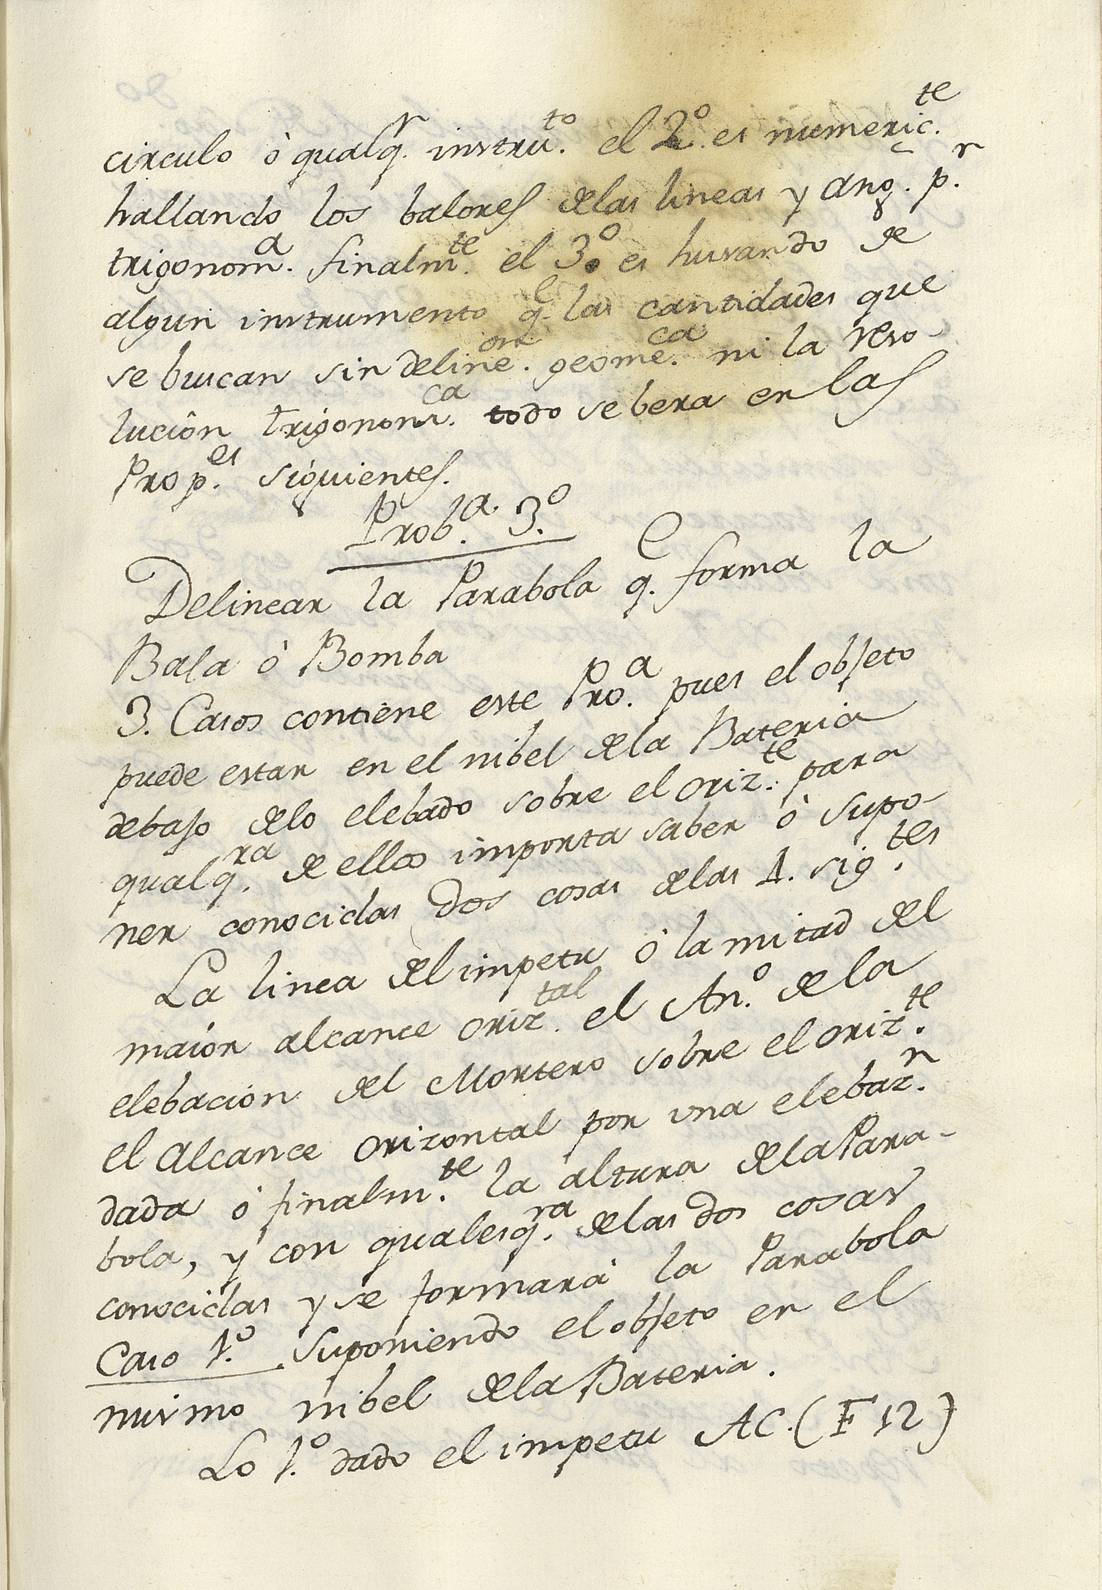 circulo ò qualq.r instru.to el 2.o es numeric.te
hallando los balores delas lineas y ang. p.r
trigonom.a finalm.te el 3.o es husando de
algun instrumento q.e las cantidades que
se buscan sin deline.on geome.ca ni la reso-
lución trigonom.ca todo se bera en las
Prop.es siguientes.
Prob.a 3.o
Delinear la Parabola q.e forma la
Bala ò Bomba
3. Casos contiene este Pro.a pues el objeto
puede estar en el nibel dela Bateria
debajo delo elebado sobre el oriz.te para
qualq.ra de ellos importa saber ò supo-
ner conocidas dos cosas delas 4. sig.tes
La linea del impetu ò la mitad del
maior alcance oriz.tal el An.o de la
elebación del Mortero sobre el oriz.te
el Alcance orizontal por una elebaz.n
dada ò finalm.te la altura dela Para-
bola, y con qualesq.ra delas dos cosas
conocidas y se formará la Parabola
Caso 1.o Suponiendo el objeto en el
mismo nibel dela Bateria.
Lo 1.o dado el impetu AC. (F 12)